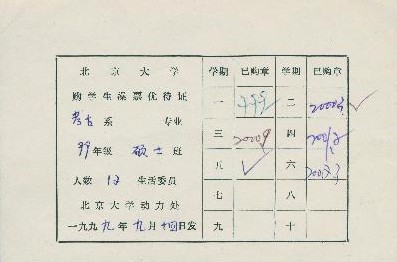 北京大学
购学生澡票优待证
考古系 专业
99年级 硕士班
人数 12 生活委员
北京大学动力处
一九九九年九月十四日发
学期 已购章 学期 已购章
一 二
三 四
五 六
七 八
九 十